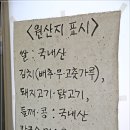 <원산지 표시>
쌀 : 국내산
김치(배추·무·고춧가루),
돼지고기·닭고기,
들깨·콩 : 국내산